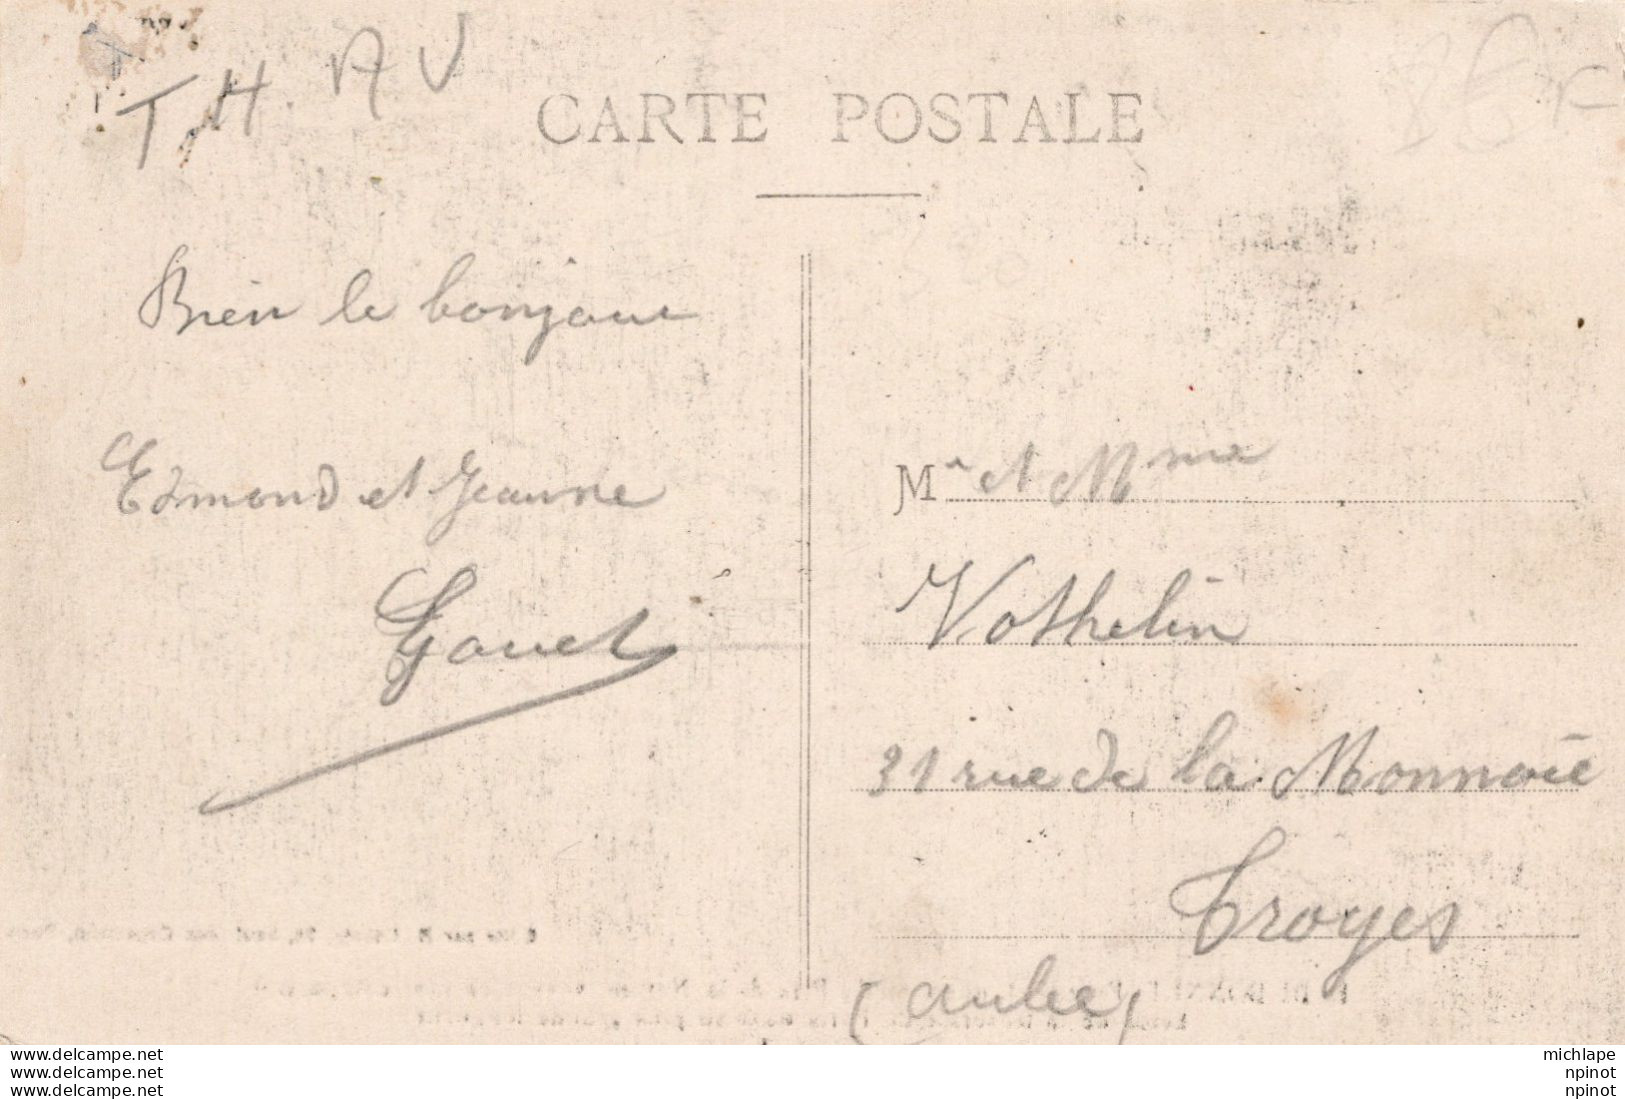 T.H. AV
CARTE POSTALE
Bien le bonjour
Edmond et Jeanne
Gouet
Mr et Mme
Vothelin
31 rue de la Monnaie
Troyes
(aube)
www.delcampe.net
www.delcampe.net
www.delcampe.net
michlape
npinot
npinot